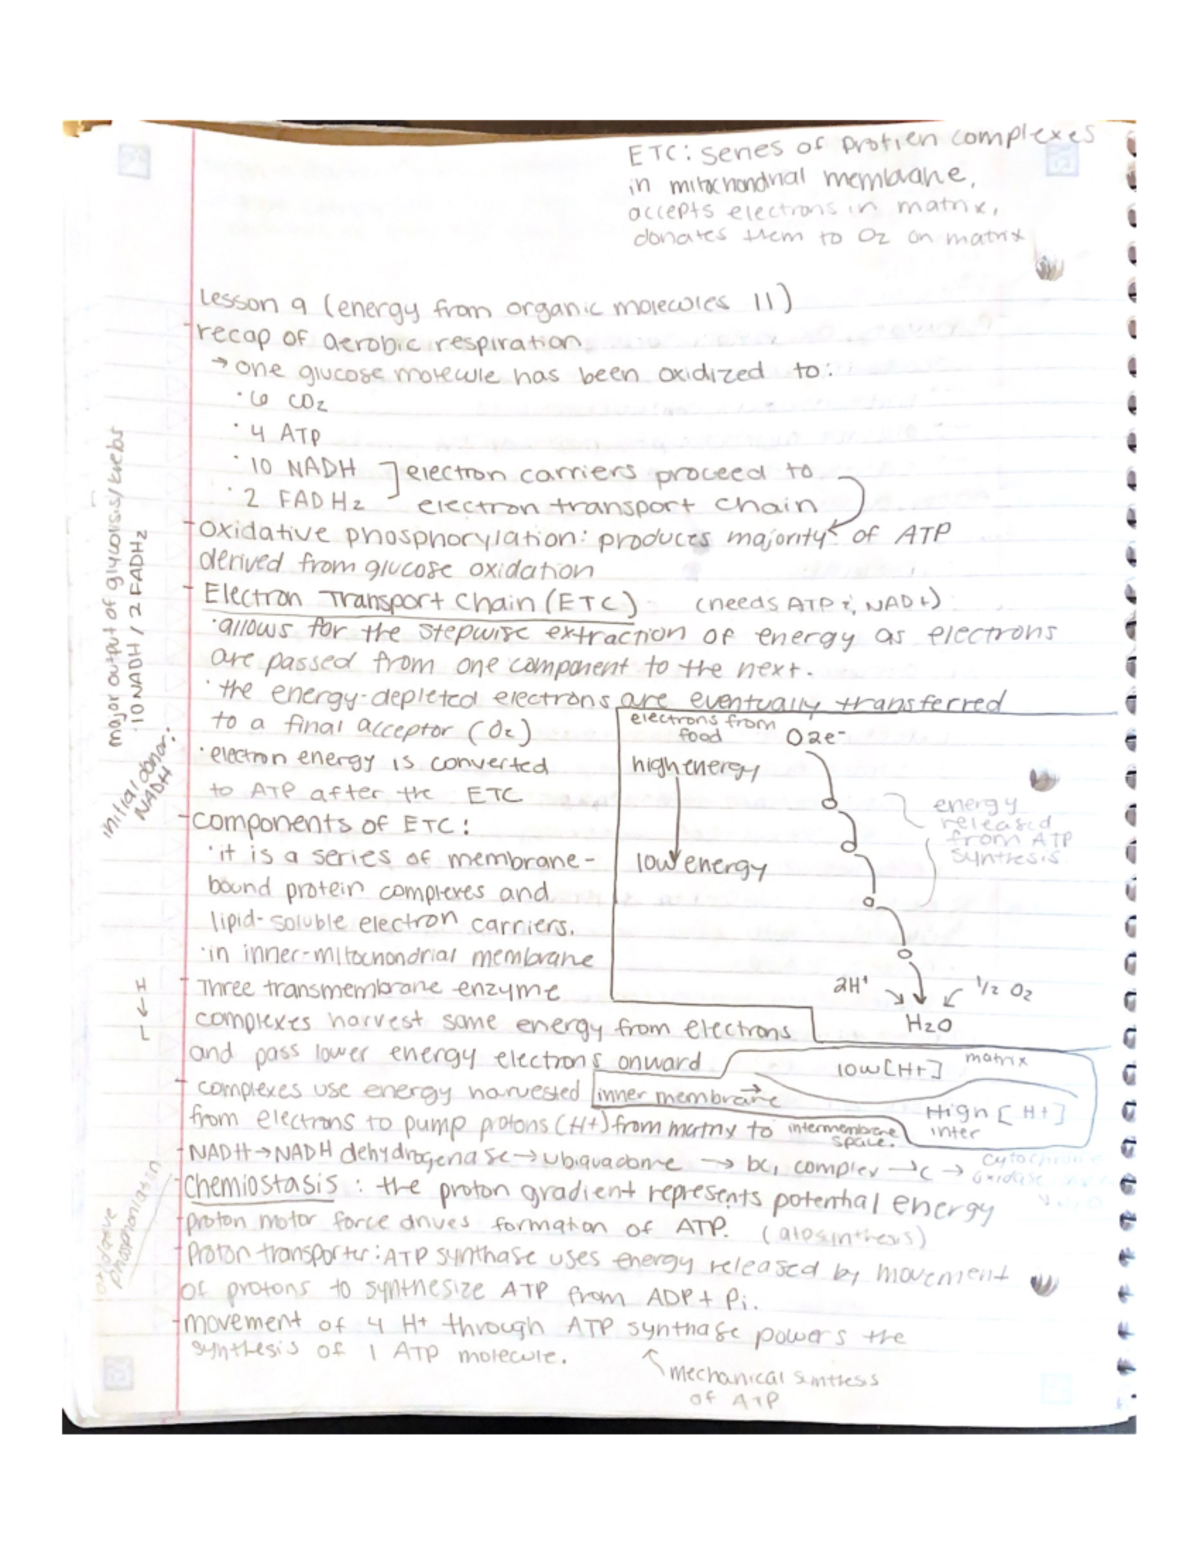 ETC: series of protien complexes
in mitochondrial membrane,
accepts electrons in matrix,
donates them to O2 on matrix
Lesson 9 (energy from organic molecules 11)
-recap of aerobic respiration
→ one glucose molecule has been oxidized to:
· 6 CO2
· 4 ATP
· 10 NADH ] electron carriers proceed to
· 2 FADH2 electron transport chain
-oxidative phosphorylation: produces majority of ATP
derived from glucose oxidation
- Electron Transport Chain (ETC) (needs ATP & NAD+)
· allows for the stepwise extraction of energy as electrons
are passed from one component to the next.
· the energy-depleted electrons are eventually transferred
to a final acceptor (O2)
· electron energy is converted
to ATP after the ETC
-components of ETC:
· it is a series of membrane-
bound protein complexes and
lipid-soluble electron carriers.
· in inner-mitochondrial membrane
- Three transmembrane enzyme
complexes harvest some energy from electrons
and pass lower energy electrons onward
- complexes use energy harvested
from electrons to pump protons (H+) from matrix to intermembrane
space.
-NADH→NADH dehydrogenase→ubiquadone → bc, complex → c → cytochrome
oxidase
- Chemiostasis : the proton gradient represents potential energy
-proton motor force drives formation of ATP.
-Proton transporter: ATP synthase uses energy released by movement
of protons to synthesize ATP from ADP + Pi.
-movement of 4 H+ through ATP synthase powers the
synthesis of 1 ATP molecule.
mechanical simtless
of ATP
electrons from
food
O2e-
high energy
low energy
energy
released
from ATP
synthesis
2H+
1/2 O2
H2O
low [H+] matrix
inner membrane
High [H+]
inter
major output of glycolisis/krebs
· 10 NADH / 2 FADH2
initial donor:
NADH
L ← H
phosphorilation